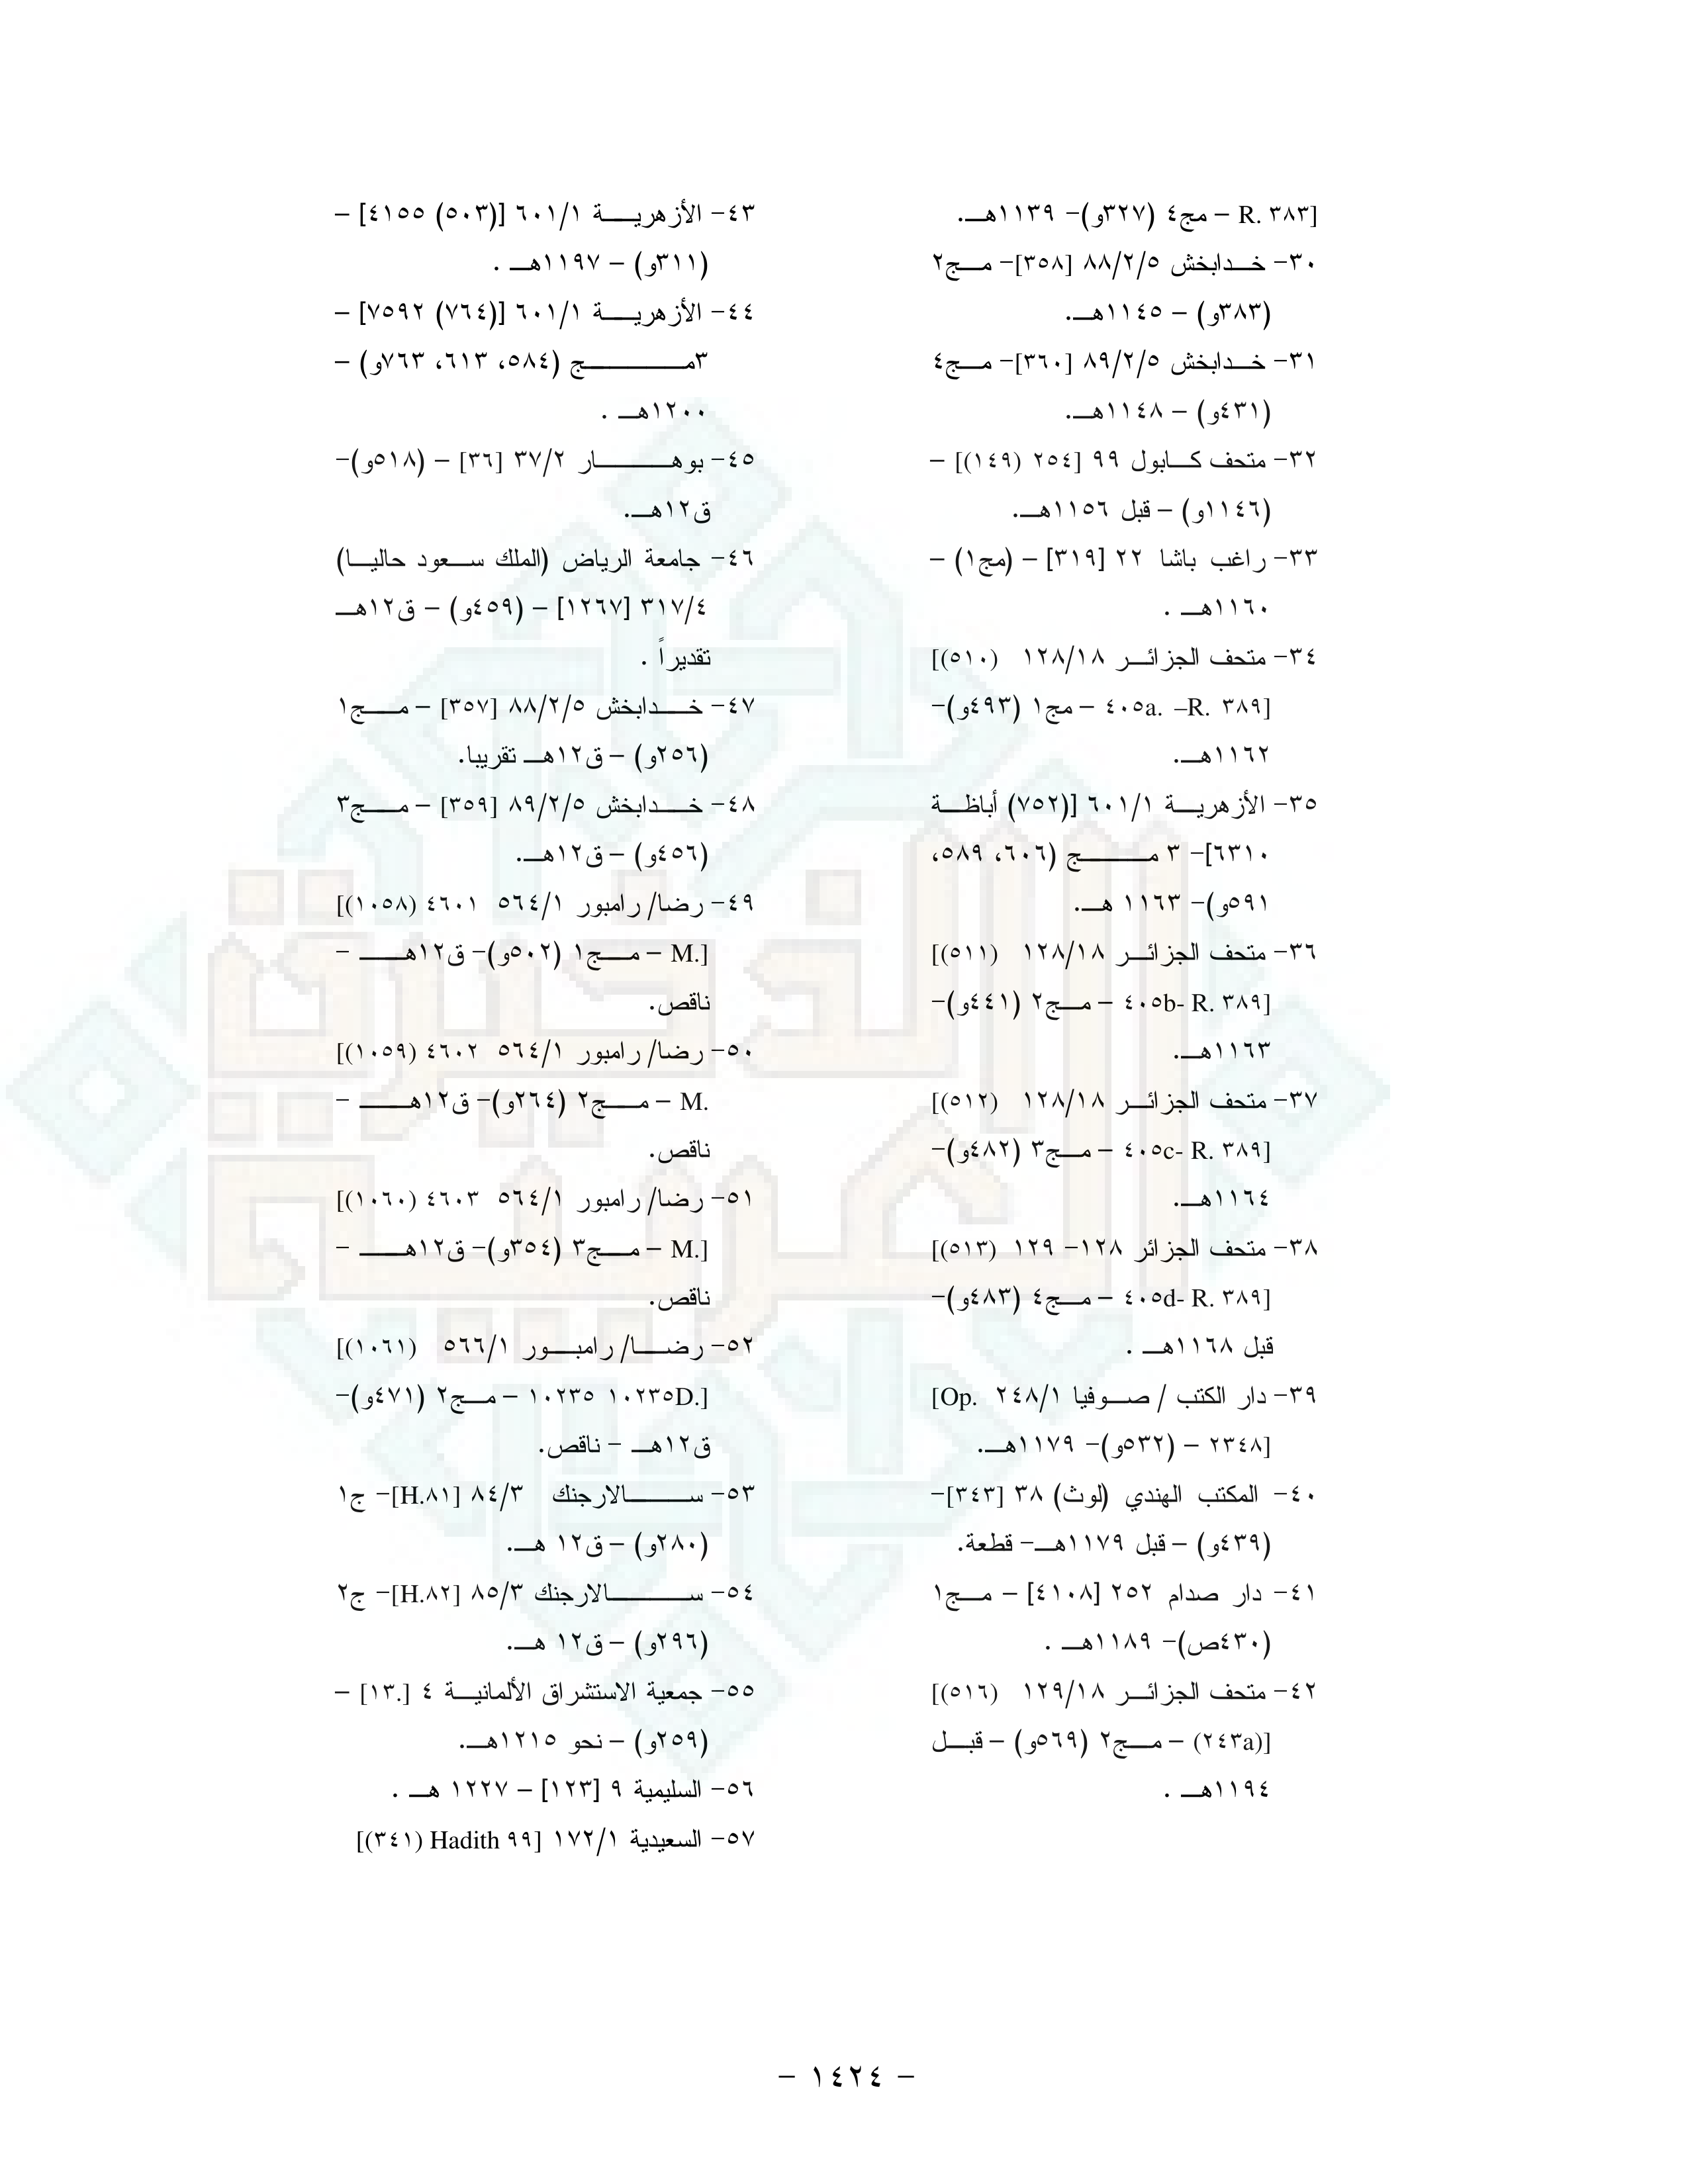 [R. ٣٨٣ – مج٤ (٣٢٧و)- ١١٣٩هـ.
٣٠- خدابخش ٨٨/٢/٥ [٣٥٨]- مج٢
(٣٨٣و) – ١١٤٥هـ.
٣١- خدابخش ٨٩/٢/٥ [٣٦٠]- مج٤
(٤٣١و) – ١١٤٨هـ.
٣٢- متحف كابول ٩٩ [٢٥٤ (١٤٩)] –
(١١٤٦و) – قبل ١١٥٦هـ.
٣٣- راغب باشا ٢٢ [٣١٩] – (مج١) –
١١٦٠هـ .
٣٤- متحف الجزائر ١٢٨/١٨ (٥١٠)]
[٤٠٥a. –R. ٣٨٩ – مج١ (٤٩٣و)-
١١٦٢هـ.
٣٥- الأزهرية ٦٠١/١ [(٧٥٢) أباظة
٦٣١٠]- ٣ مج (٦٠٦، ٥٨٩،
٥٩١و)- ١١٦٣ هـ.
٣٦- متحف الجزائر ١٢٨/١٨ (٥١١)]
[٤٠٥b- R. ٣٨٩ – مج٢ (٤٤١و)-
١١٦٣هـ.
٣٧- متحف الجزائر ١٢٨/١٨ (٥١٢)]
[٤٠٥c- R. ٣٨٩ – مج٣ (٤٨٢و)-
١١٦٤هـ.
٣٨- متحف الجزائر ١٢٨- ١٢٩ (٥١٣)]
[٤٠٥d- R. ٣٨٩ – مج٤ (٤٨٣و)-
قبل ١١٦٨هـ .
٣٩- دار الكتب / صوفيا ٢٤٨/١ Op.]
[٢٣٤٨ – (٥٣٢و)- ١١٧٩هـ.
٤٠- المكتب الهندي (لوث) ٣٨ [٣٤٣]-
(٤٣٩و) – قبل ١١٧٩هـ- قطعة.
٤١- دار صدام ٢٥٢ [٤١٠٨] – مج١
(٤٣٠ص)- ١١٨٩هـ .
٤٢- متحف الجزائر ١٢٩/١٨ (٥١٦)]
[(٢٤٣a) – مج٢ (٥٦٩و) – قبل
١١٩٤هـ .
٤٣- الأزهرية ٦٠١/١ [(٥٠٣) ٤١٥٥] –
(٣١١و) – ١١٩٧هـ .
٤٤- الأزهرية ٦٠١/١ [(٧٦٤) ٧٥٩٢] –
٣مج (٥٨٤، ٦١٣، ٧٦٣و) –
١٢٠٠هـ .
٤٥- بوهار ٣٧/٢ [٣٦] – (٥١٨و)-
ق١٢هـ.
٤٦- جامعة الرياض (الملك سعود حاليا)
٣١٧/٤ [١٢٦٧] – (٤٥٩و) – ق١٢هـ
تقديراً .
٤٧- خدابخش ٨٨/٢/٥ [٣٥٧] – مج١
(٢٥٦و) – ق١٢هـ تقريبا.
٤٨- خدابخش ٨٩/٢/٥ [٣٥٩] – مج٣
(٤٥٦و) – ق١٢هـ.
٤٩- رضا/ رامبور ٥٦٤/١ ٤٦٠١ (١٠٥٨)]
[.M – مج١ (٥٠٢و)- ق١٢هـ -
ناقص.
٥٠- رضا/ رامبور ٥٦٤/١ ٤٦٠٢ (١٠٥٩)]
.M – مج٢ (٢٦٤و)- ق١٢هـ -
ناقص.
٥١- رضا/ رامبور ٥٦٤/١ ٤٦٠٣ (١٠٦٠)]
[.M – مج٣ (٣٥٤و)- ق١٢هـ -
ناقص.
٥٢- رضا/ رامبور ٥٦٦/١ (١٠٦١)]
[.١٠٢٣٥ ١٠٢٣٥D – مج٢ (٤٧١و)-
ق١٢هـ – ناقص.
٥٣- سالارجنك ٨٤/٣ [H.٨١]- ج١
(٢٨٠و) – ق١٢ هـ.
٥٤- سالارجنك ٨٥/٣ [H.٨٢]- ج٢
(٢٩٦و) – ق١٢ هـ.
٥٥- جمعية الاستشراق الألمانية ٤ [.١٣] –
(٢٥٩و) – نحو ١٢١٥هـ.
٥٦- السليمية ٩ [١٢٣] – ١٢٢٧ هـ .
٥٧- السعيدية ١٧٢/١ [Hadith ٩٩ (٣٤١)]
– ١٤٢٤ –
الذخيرة
العربية